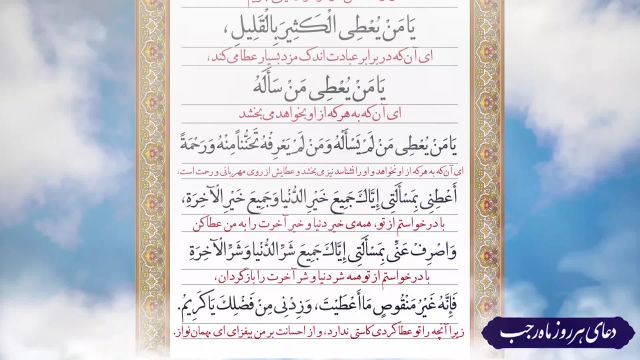 یَا مَنْ یُعْطِی الْکَثِیرَ بِالْقَلِیلِ،
ای آن که در برابر عبادت اندک مزد بسیار عطا می کند،
یَا مَنْ یُعْطِی مَنْ سَأَلَهُ
ای آن که به هر که از او بخواهد می بخشد
یَا مَنْ یُعْطِی مَن لَمْ یَسْأَلْهُ وَمَنْ لَمْ یَعْرِفْهُ تَحَنُّناً مِنْهُ وَرَحْمَةً
ای آن که به هر که از او نخواهد و او را نشناسد نیز می بخشد و عطایش از روی مهربانی و رحمت است.
أَعْطِنِی بِمَسْأَلَتِی إِیَّاکَ جَمِیعَ خَیْرِ الدُّنْیَا وَجَمِیعَ خَیْرِ الْآخِرَةِ،
با درخواستم از تو، همه ی خیر دنیا و خیر آخرت را به من عطا کن
وَاصْرِفْ عَنِّی بِمَسْأَلَتِی إِیَّاکَ جَمِیعَ شَرِّ الدُّنْیَا وَشَرِّ الْآخِرَةِ
با درخواستم از تو همه شر دنیا و شر آخرت را بازگردان،
فَإِنَّهُ غَیْرُ مَنْقُوصٍ مَا أَعْطَیْتَ، وَزِدْنِی مِنْ فَضْلِکَ یَا کَرِیمُ.
زیرا آنچه را تو عطا کردی کاستی ندارد، و از احسانت بر من بیفزای ای مهمان نواز.
دعای هر روز ماه رجب